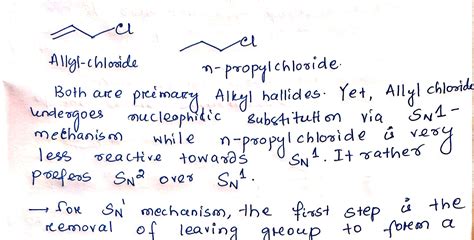 Cl
Cl
Allyl-chloride
n-propylchloride.
Both are primary Alkyl hallides. Yet, Allyl chloride
undergoes nucleophilic substitution via SN1-
mechanism while n-propyl chloride is very
less reactive towards SN1. It rather
prefers SN2 over SN1.
→ for SN1 mechanism, the first step is the
removal of leaving group to form a